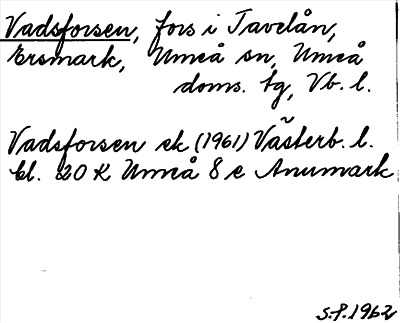 Vadsforsen, fors i Tavelån,
Ersmark, Umeå sn, Umeå
doms. tg, Vb. l.
Vadsforsen ek (1961) Västerb. l.
bl. 20 K Umeå 8 e Anumark
S.P. 1962